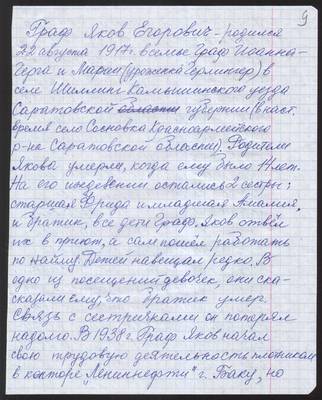 9
Граф Яков Егорович - родился
22 августа 1917г. в семье Граф Иоанна-
Георга и Марии (урожденка Герлингер) в
селе Шиллинг Камышинского уезда
Саратовской области губернии (в наст.
время село Сосновка Красноармейского
р-на Саратовской области). Родители
Якова умерли, когда ему было 14 лет.
На его иждевении остались 2 сестры:
старшая Фрида и младшая Амалия,
и братик, все дети Граф. Яков отвёл
их в приют, а сам пошел работать
по найму. Детей навещал редко. В
одно из посещений девочек, они ска-
сказали ему, что братик умер.
Связь с сестричками он потерял
надолго. В 1938 г. Граф Яков начал
свою трудовую деятельность плотником
в конторе "Лениннефти" г. Баку, но